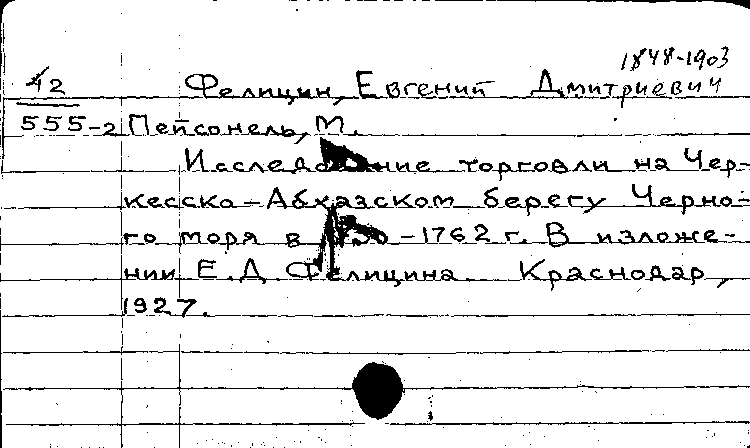 1848-1903
42 Фелицын, Евгений Дмитриевич
555-2 Пейсонель, М.
Исследование торговли на Чер-
кесско-Абхазском берегу Черно-
го моря в 1750-1762 г. В изложе-
нии Е.Д. Фелицина. Краснодар,
1927.